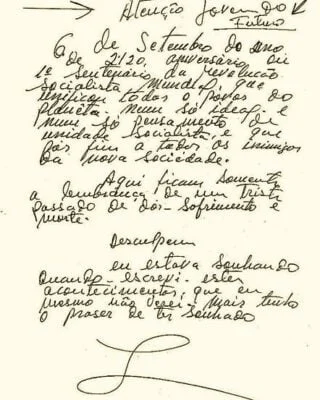 Atenção Jovem do
Futuro
6 de Setembro do ano
de 2120, aniversário ou
1º Sentenário da revolução
Socialista Mundial, que
unificou todos o povos do
planeta. Num só ideal e
num só pensamento de
unidade Socialista, e que
pôs fim a todos os inimigos
da nova sociedade.
Aqui ficam somente
a lembrança de um triste
passado de dor, sofrimento e
morte.
Desculpem
eu estava sonhando
Quando escrevi estes
acontecimentos, que eu
mesmo não verei. Mais tenho
o praser de ter sonhado